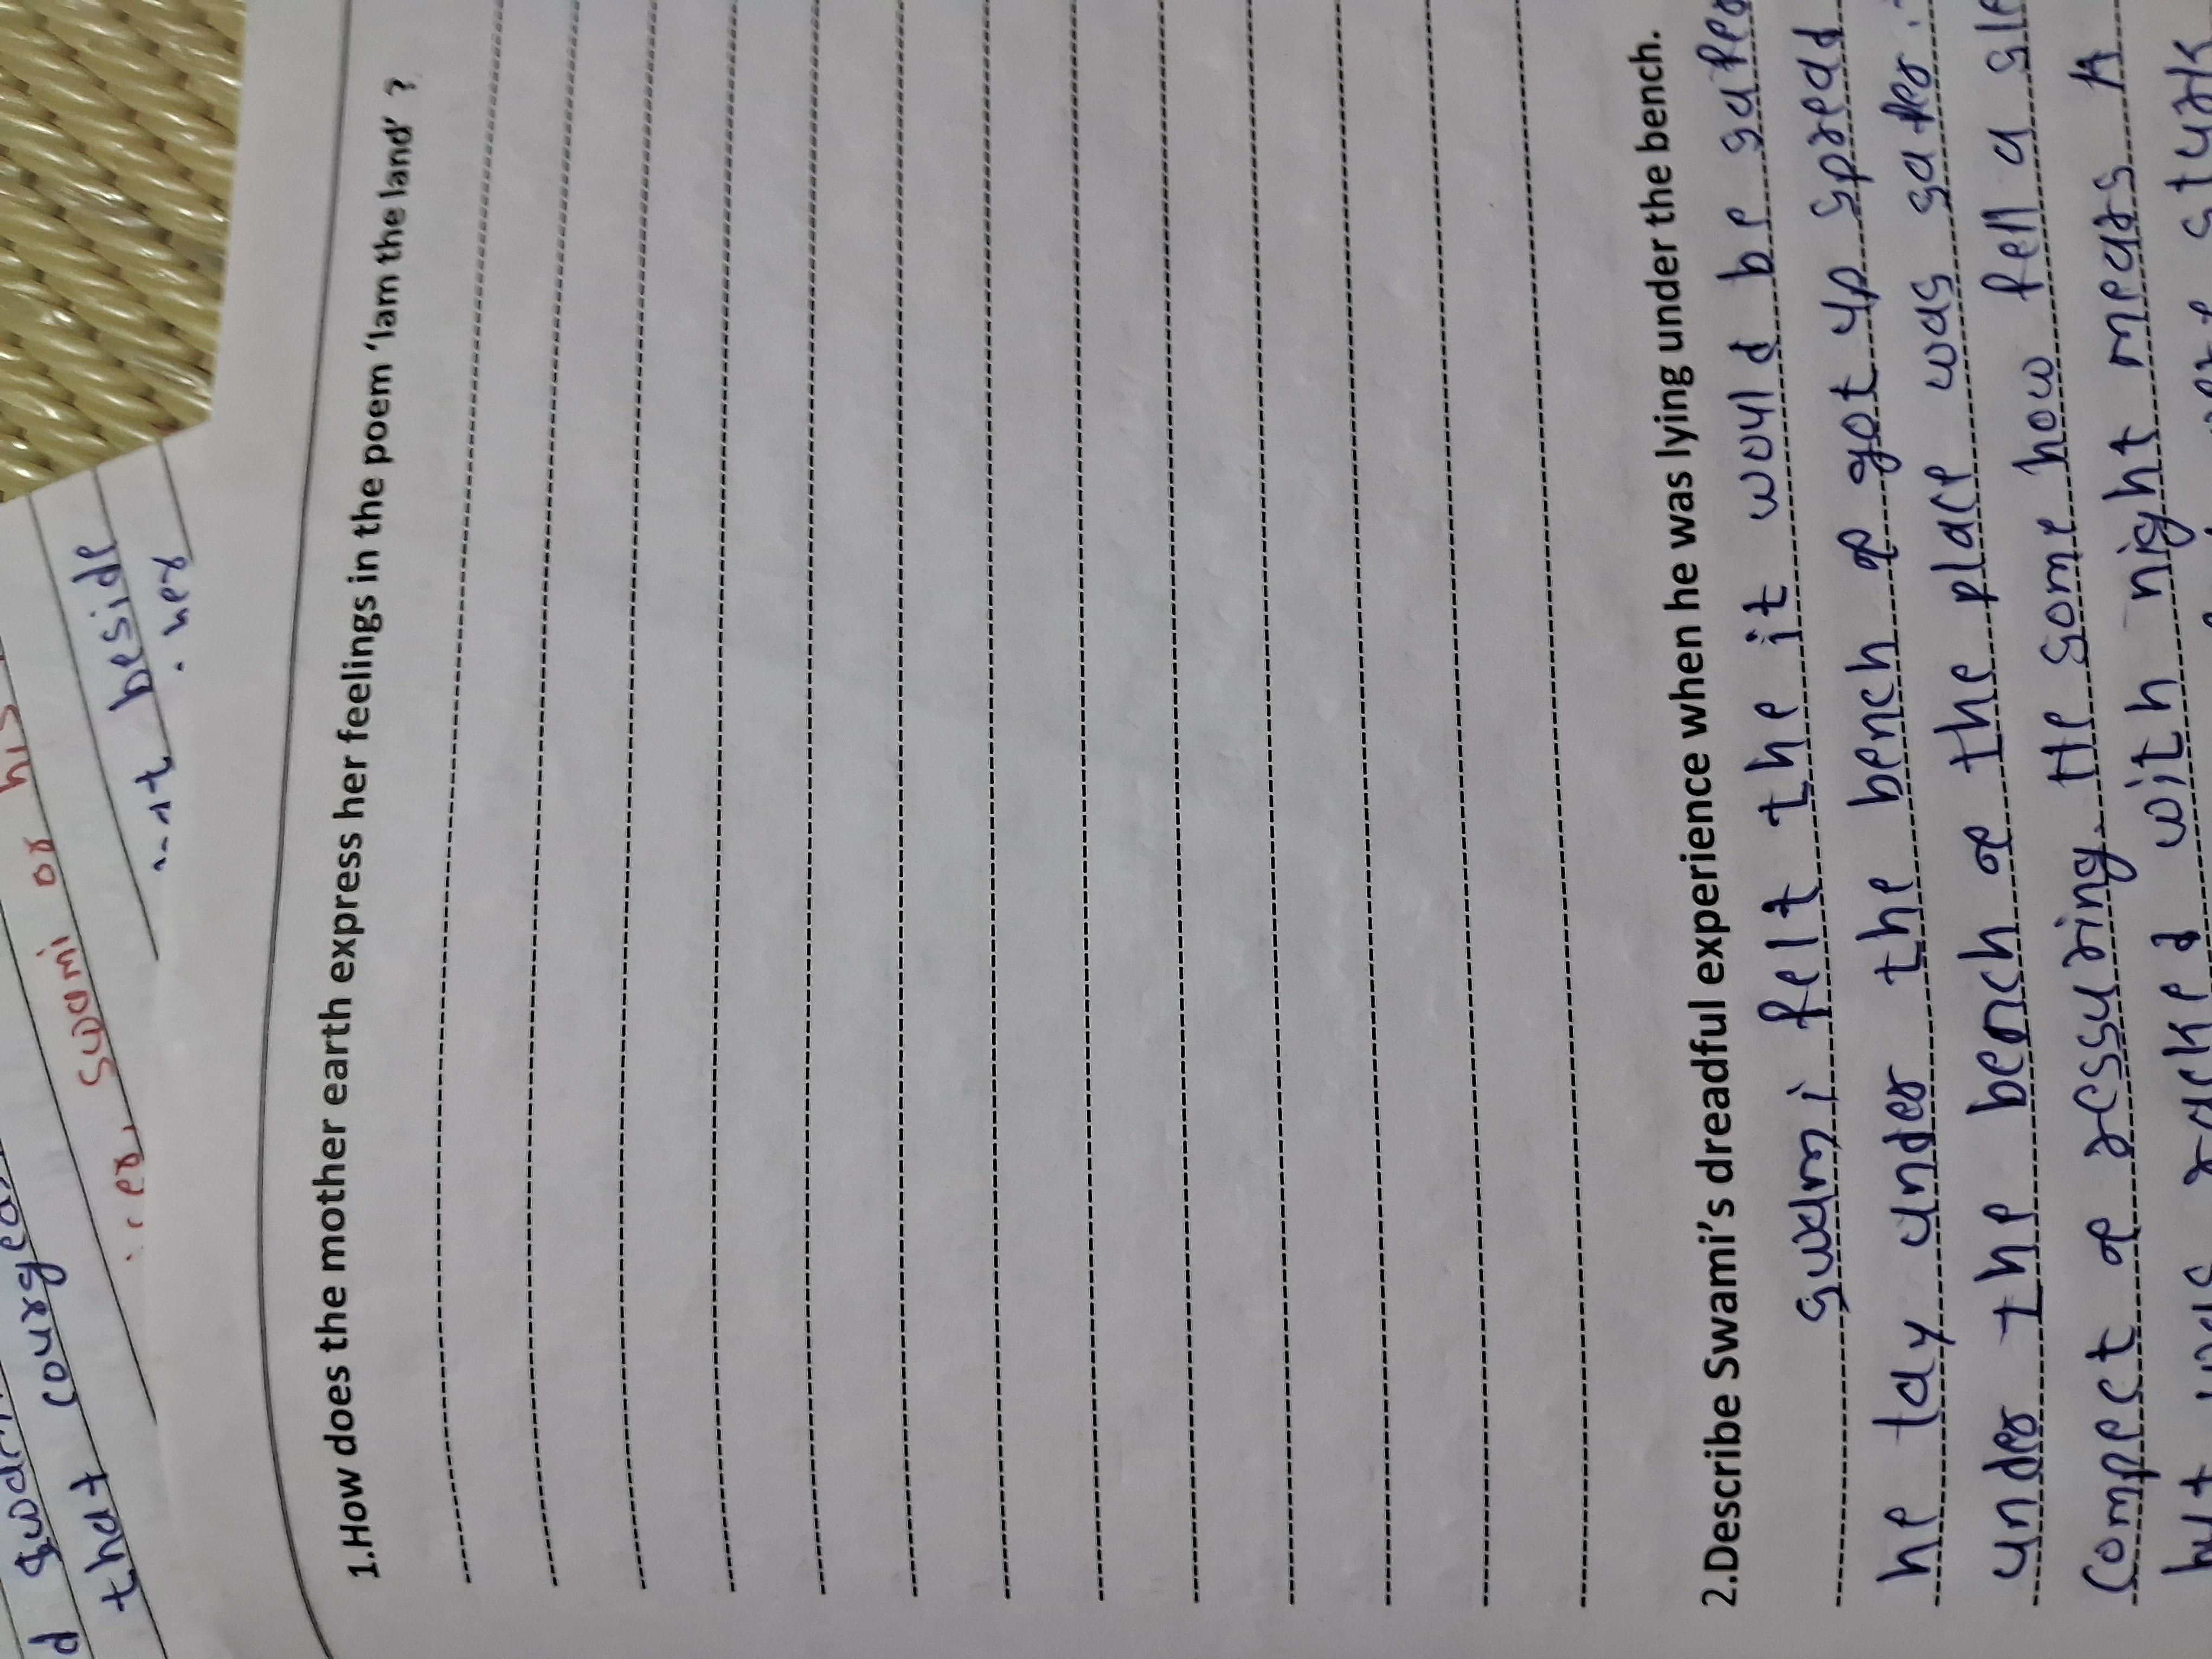 d Swam
that courgeo
Swami or his
beside
her
1.How does the mother earth express her feelings in the poem ‘Iam the land’ ?
2.Describe Swami’s dreadful experience when he was lying under the bench.
swami felt the it would be safer
he lay under the bench & got up spread
under the bench & the place was safer.
compect & ressuring. He some how fell a sle
but was racked with night mears A
sturk